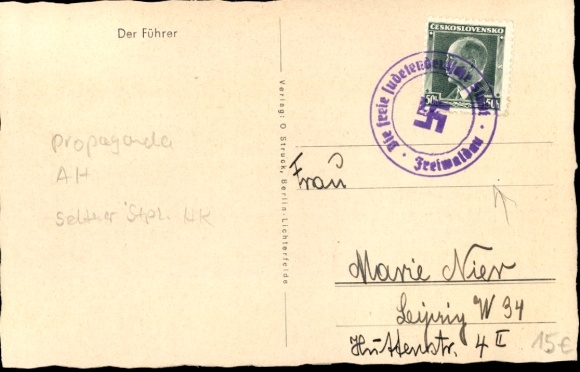 Der Führer
ČESKOSLOVENSKO
50h 50h
Die freie sudetendeutsche Stadt
Freiwaldau
Verlag: O Struck, Berlin-Lichterfelde
Propaganda
AH
Seltener Stpl. HK
Frau
Marie Nier
Leipzig W 34
Huttenstr. 4 II
15€